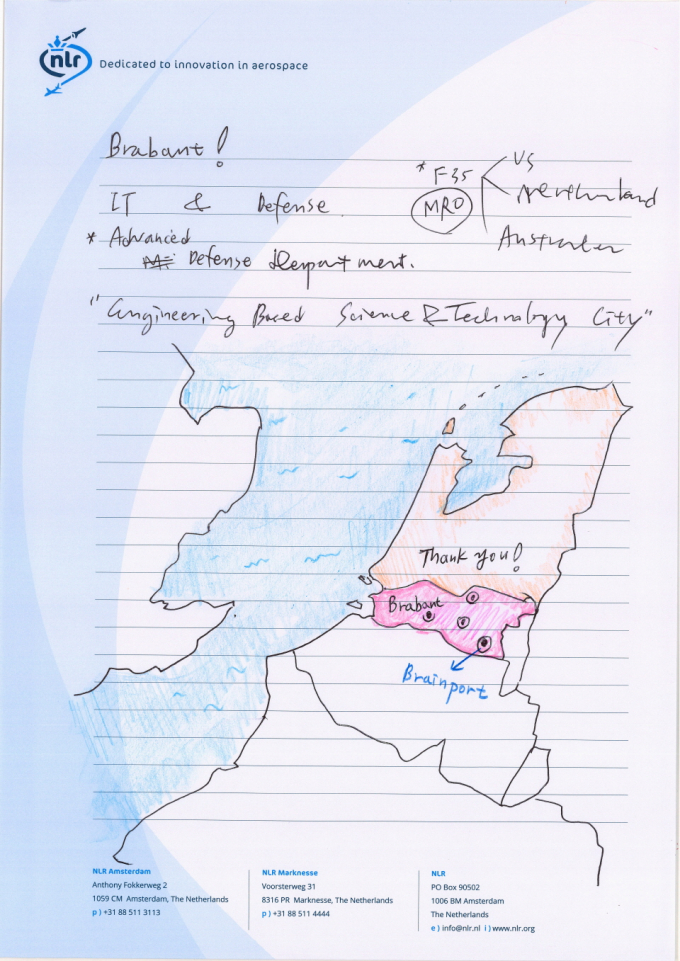 nlr Dedicated to innovation in aerospace
Brabant!
* F35 US
MRO Netherland
IT & Defense
Australia
* Advanced
Defense Department.
"Engineering Based Science & Technology City"
Thank you!
Brabant
Brainport
NLR Amsterdam
Anthony Fokkerweg 2
1059 CM Amsterdam, The Netherlands
p ) +31 88 511 3113
NLR Marknesse
Voorsterweg 31
8316 PR Marknesse, The Netherlands
p ) +31 88 511 4444
NLR
PO Box 90502
1006 BM Amsterdam
The Netherlands
e ) info@nlr.nl i ) www.nlr.org